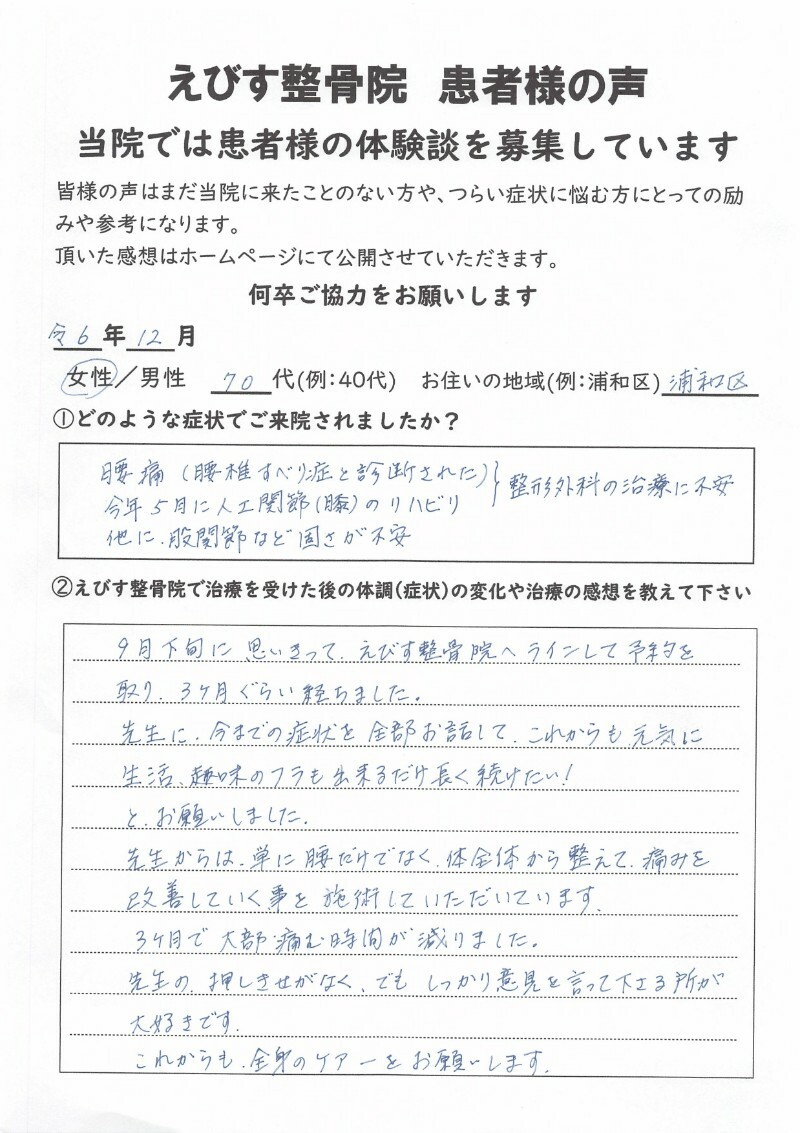 えびす整骨院 患者様の声
当院では患者様の体験談を募集しています
皆様の声はまだ当院に来たことのない方や、つらい症状に悩む方にとっての励
みや参考になります。
頂いた感想はホームページにて公開させていただきます。
何卒ご協力をお願いします
令6年12月
女性／男性 70代(例：40代) お住いの地域(例：浦和区)浦和区
①どのような症状でご来院されましたか？
腰痛(腰椎すべり症と診断された)
今年5月に人工関節(膝)のリハビリ
}整形外科の治療に不安
他に、股関節など固さが不安
②えびす整骨院で治療を受けた後の体調(症状)の変化や治療の感想を教えて下さい
9月下旬に思いきって、えびす整骨院へラインして予約を
取り、3ヶ月ぐらい経ちました。
先生に、今までの症状を全部お話して、これからも元気に
生活、趣味のフラも出来るだけ長く続けたい！
と、お願いしました。
先生からは、単に腰だけでなく、体全体から整えて、痛みを
改善していく事を施術していただいています。
3ヶ月で大部痛む時間が減りました。
先生の、押しきせがなく、でもしっかり意見を言って下さる所が
大好きです。
これからも、全身のケアーをお願いします。